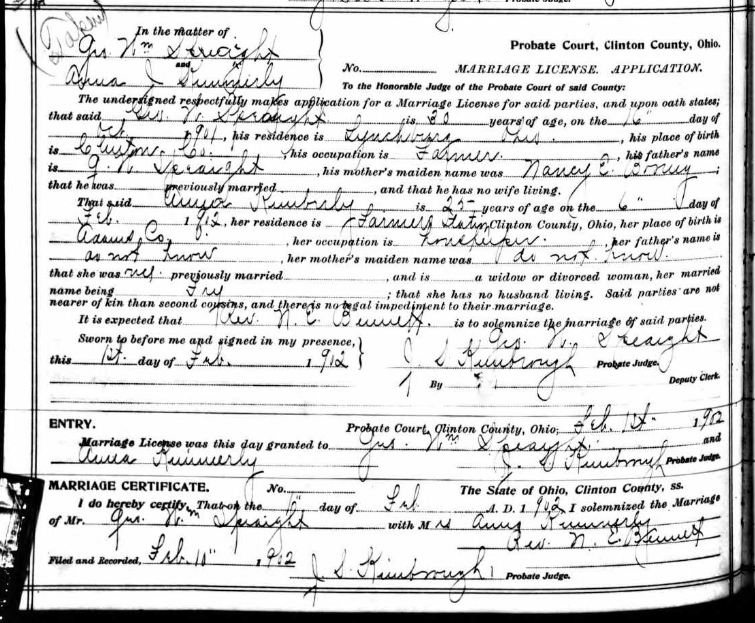 Probate Judge.
In the matter of
Wm
and
Anna J.
Probate Court, Clinton County, Ohio.
No. MARRIAGE LICENSE. APPLICATION.
To the Honorable Judge of the Probate Court of said County:
The undersigned respectfully makes application for a Marriage License for said parties, and upon oath states;
that said W. is 30 years of age, on the 16" day of
Oct. 1901, his residence is Lynchburg, his place of birth
is Clinton Co., his occupation is Farmer., his father's name
is, his mother's maiden name was Nancy E.;
that he was previously married, and that he has no wife living.
That said is 25 years of age on the 6" day of
Feb. 1902, her residence is Farmers Clinton County, Ohio, her place of birth is
Adams Co., her occupation is, her father's name is
not know, her mother's maiden name was do not know.
that she was previously married, and is a widow or divorced woman, her married
name being Fry; that she has no husband living. Said parties are not
nearer of kin than second cousins, and there is no legal impediment to their marriage.
It is expected that Rev. N. E. Bennett. is to solemnize the marriage of said parties.
Sworn to before me and signed in my presence,
this 1st. day of Feb. 1902
J. S. Kimbrough Probate Judge.
By Deputy Clerk.
ENTRY.
Probate Court, Clinton County, Ohio, Feb 1st. 1902
Marriage License was this day granted to Wm and
Anna J. S. Kimbrough Probate Judge.
MARRIAGE CERTIFICATE. No. The State of Ohio, Clinton County, ss.
I do hereby certify, That on the day of Feb A. D. 1902 I solemnized the Marriage
of Mr. Wm with Mrs Anna
Rev. N. E. Bennett
Filed and Recorded, Feb. 10" 1902
J. S. Kimbrough Probate Judge.